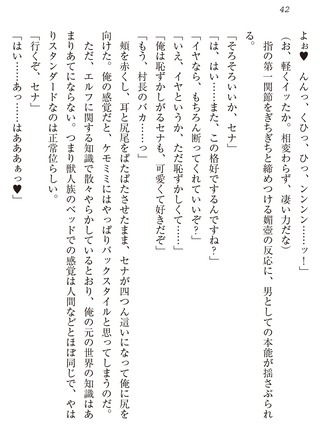 42
よぉ♥　んんっ、くひっ、ひっ、ンンンン……ッ！」
（お、軽くイッたか。相変わらず、凄い力だな）
　指の第一関節をぎちぎちと締めつける媚壺の反応に、男としての本能が揺さぶられ
る。
「そろそろいいか、セナ」
「は、はい……また、この格好でするんですね？」
「イヤなら、もちろん断ってくれていいぞ？」
「いえ、イヤというか、ただ恥ずかしくて……」
「俺は恥ずかしがるセナも、可愛くて好きだぞ」
「もう、村長のバカ……っ」
　頬を赤くし、耳と尻尾をぱたぱたさせたまま、セナが四つん這いになって俺に尻を
向けた。俺の感覚だと、ケモミミにはやっぱりバックスタイルと思ってしまうのだ。
　ただ、エルフに関する知識で散々やらかしているとおり、俺の元の世界の知識はあ
まりあてにならない。つまり獣人族のベッドでの感覚は人間などとほぼ同じで、やは
りスタンダードなのは正常位らしい。
「行くぞ、セナ」
「はい……あっ……はああぁっ♥」